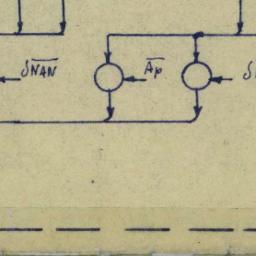 δN̅A̅N̅ A̅p̅